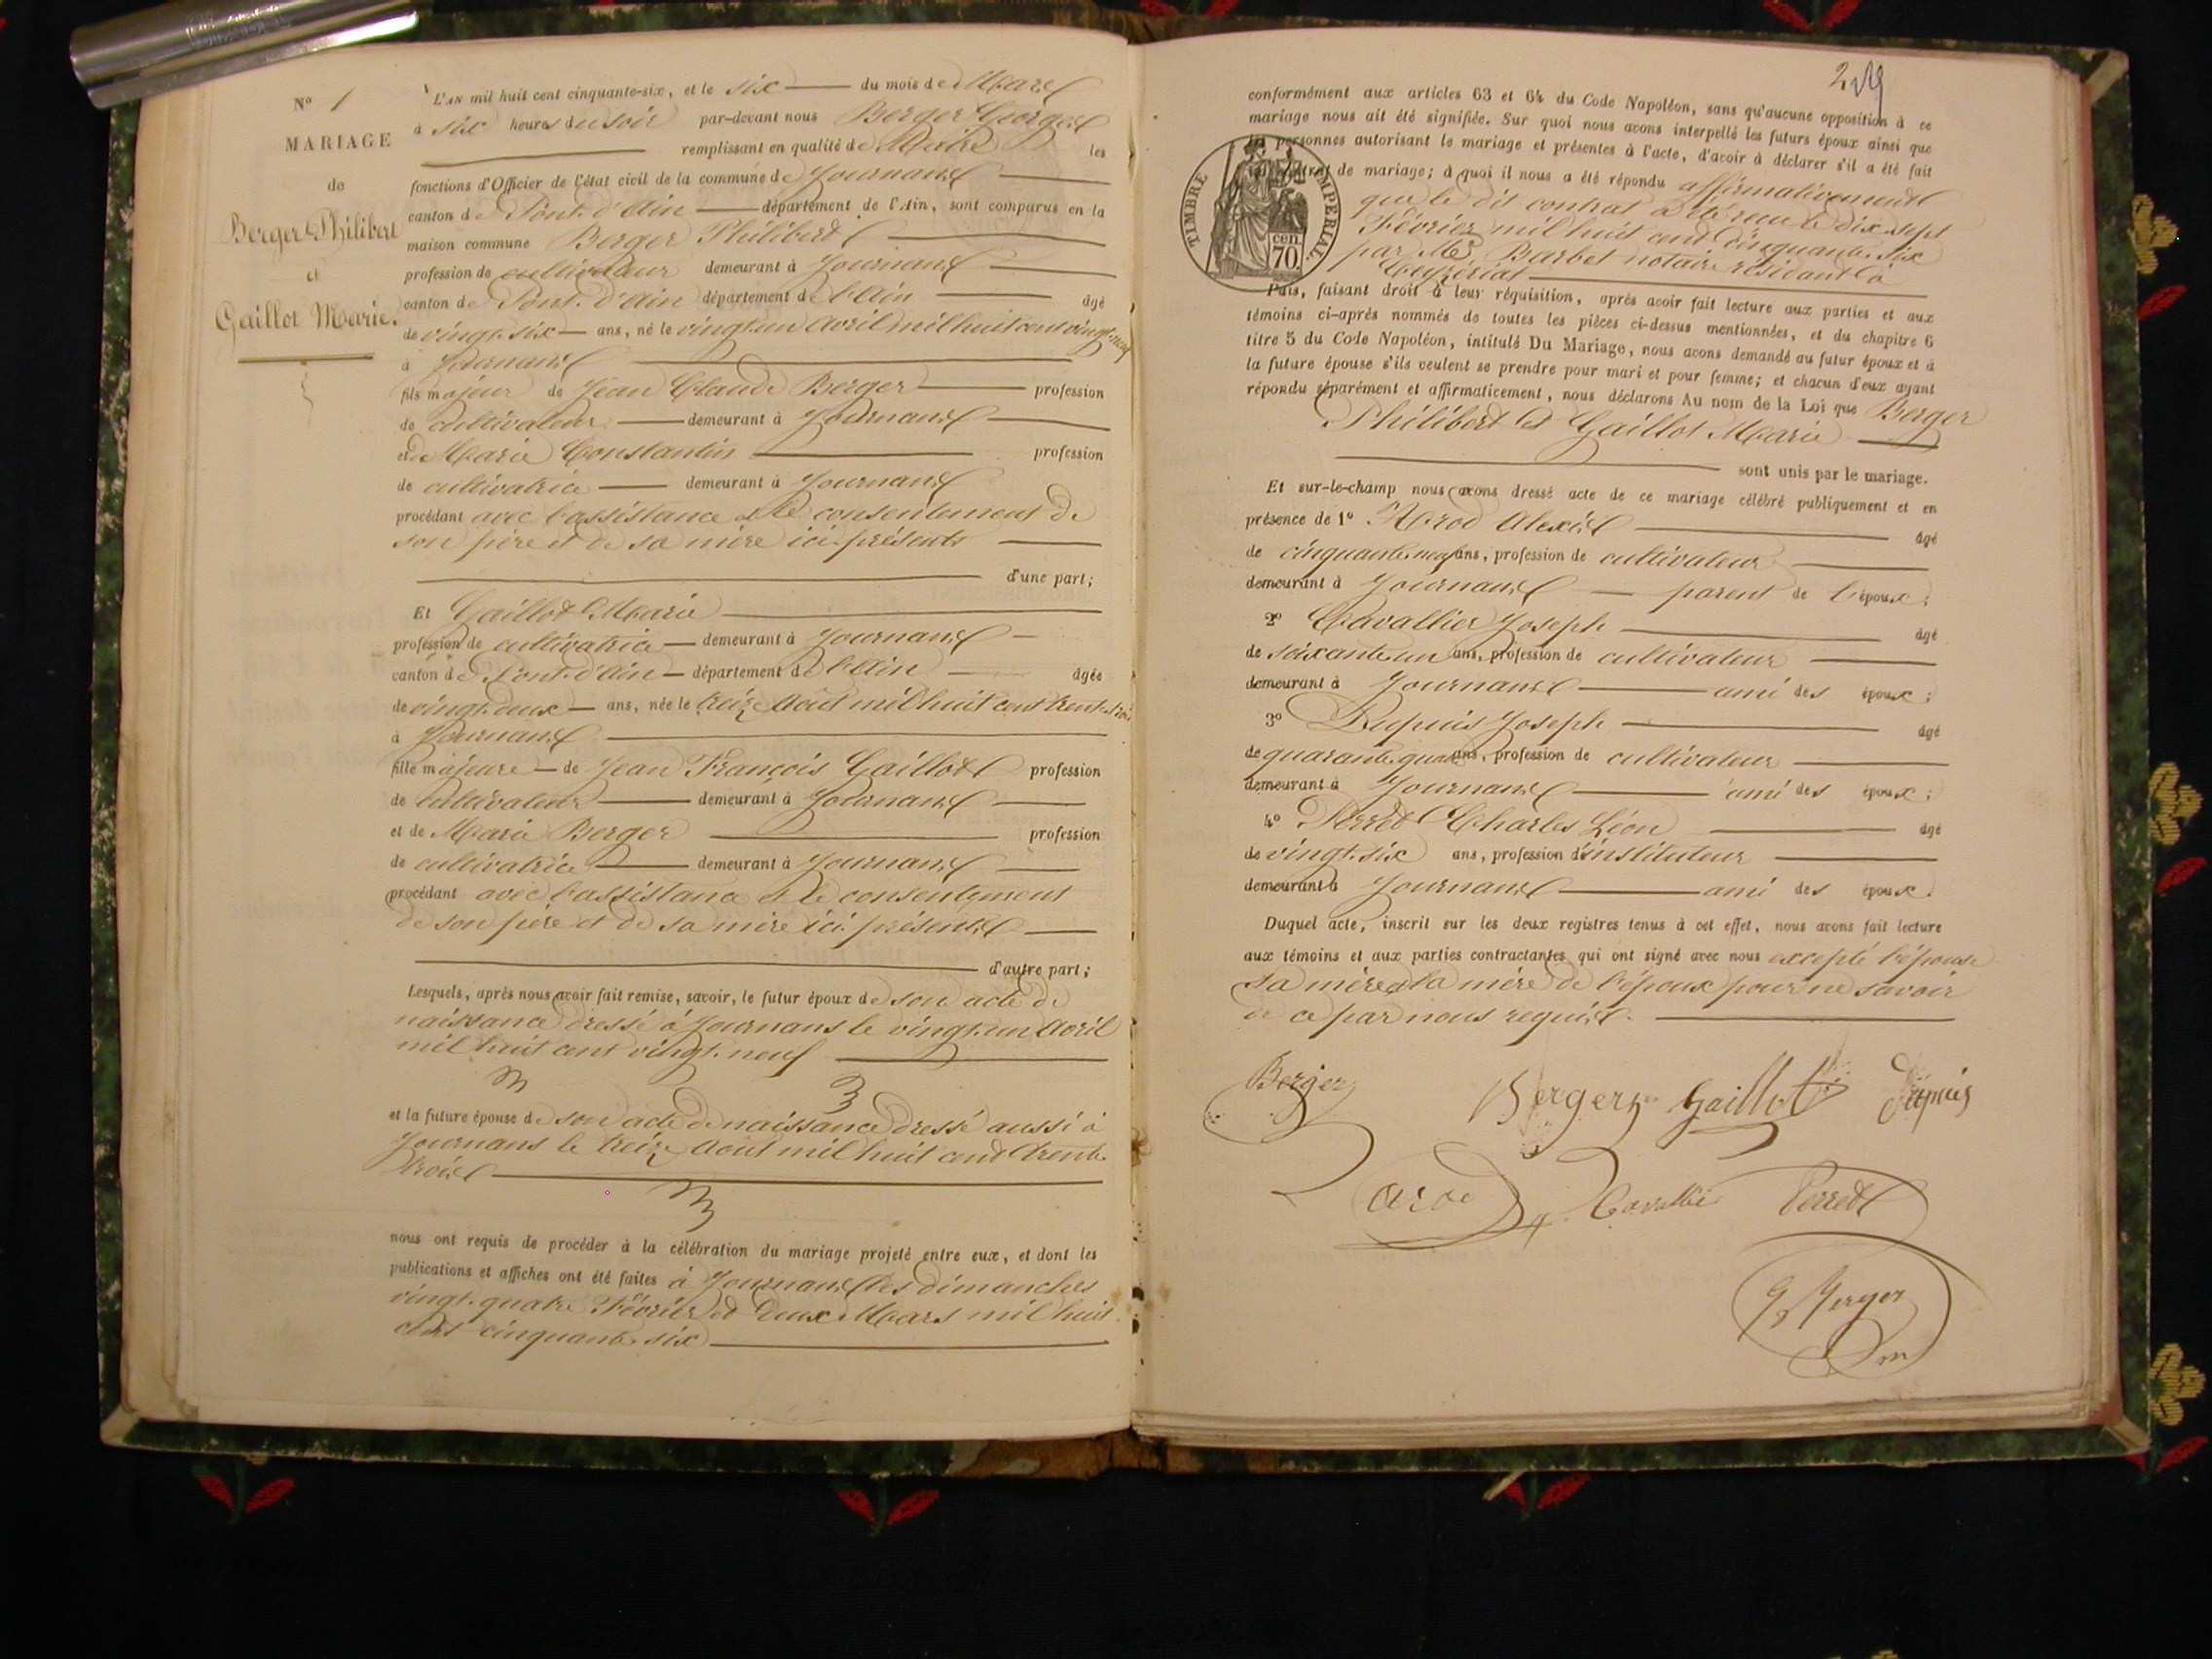 N° 1
MARIAGE
de
Berger Philibert
et
Gaillot Marie.
L'AN mil huit cent cinquante-six, et le six du mois de Mars
à six heures du soir par-devant nous Berger Georges
remplissant en qualité de Maire les
fonctions d'Officier de l'état civil de la commune de Journans
canton de Pont-d'Ain département de l'Ain, sont comparus en la
maison commune Berger Philibert
profession de cultivateur demeurant à Journans
canton de Pont-d'Ain département de l'Ain âgé
de vingt-six ans, né le vingt-un Avril mil huit cent vingt-neuf
à Journans
fils majeur de Jean Claude Berger profession
de cultivateur demeurant à Journans
et de Marie Constantin profession
de cultivatrice demeurant à Journans
procédant avec l'assistance et le consentement de
son père et de sa mère ici présents
d'une part;
Et Gaillot Marie
profession de cultivatrice demeurant à Journans
canton de Pont-d'Ain département de l'Ain âgée
de vingt-deux ans, née le treize Août mil huit cent trente-trois
à Journans
fille majeure de Jean François Gaillot profession
de cultivateur demeurant à Journans
et de Marie Berger profession
de cultivatrice demeurant à Journans
procédant avec l'assistance et le consentement
de son père et de sa mère ici présents
d'autre part;
Lesquels, après nous avoir fait remise, savoir, le futur époux de son acte de
naissance dressé à Journans le vingt-un Avril
mil huit cent vingt-neuf
et la future épouse de son acte de naissance dressé aussi à
Journans le treize Août mil huit cent trente
trois
nous ont requis de procéder à la célébration du mariage projeté entre eux, et dont les
publications et affiches ont été faites à Journans les dimanches
vingt-quatre Février et deux Mars mil huit
cent cinquante-six
conformément aux articles 63 et 64 du Code Napoléon, sans qu'aucune opposition à ce
mariage nous ait été signifiée. Sur quoi nous avons interpellé les futurs époux ainsi que
les personnes autorisant le mariage et présentes à l'acte, d'avoir à déclarer s'il a été fait
contrat de mariage; à quoi il nous a été répondu affirmativement
que le dit contrat a été reçu le dix-sept
Février mil huit cent cinquante-six
par Me Barbet notaire résidant à
Ceyzériat
TIMBRE IMPERIAL
cen.
70.
Puis, faisant droit à leur réquisition, après avoir fait lecture aux parties et aux
témoins ci-après nommés de toutes les pièces ci-dessus mentionnées, et du chapitre 6
titre 5 du Code Napoléon, intitulé Du Mariage, nous avons demandé au futur époux et à
la future épouse s'ils veulent se prendre pour mari et pour femme; et chacun d'eux ayant
répondu séparément et affirmativement, nous déclarons Au nom de la Loi que Berger
Philibert et Gaillot Marie
sont unis par le mariage.
Et sur-le-champ nous avons dressé acte de ce mariage célébré publiquement et en
présence de 1° Arod Alexis âgé
de cinquante-neuf ans, profession de cultivateur
demeurant à Journans parent de l'époux;
2° Cavallier Joseph âgé
de soixante-un ans, profession de cultivateur
demeurant à Journans ami des époux;
3° Dupuis Joseph âgé
de quarante-quatre ans, profession de cultivateur
demeurant à Journans ami des époux;
4° Perret Charles Léon âgé
de vingt-six ans, profession d'instituteur
demeurant à Journans ami des époux.
Duquel acte, inscrit sur les deux registres tenus à cet effet, nous avons fait lecture
aux témoins et aux parties contractantes qui ont signé avec nous excepté l'épouse
sa mère et la mère de l'époux pour ne savoir
de ce par nous requis.
Berger Berger Gaillot Dupuis
Arod Cavallie Perret
G Berger
m